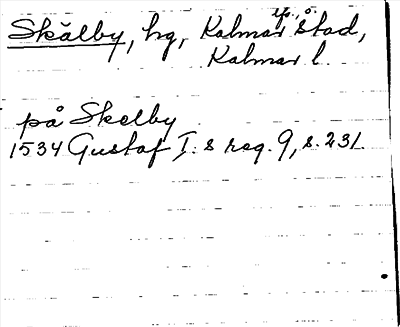 Skälby, hg, Kalmar stad,
Kalmar l.
på Skelby
1534 Gustaf I:s reg. 9, s. 231